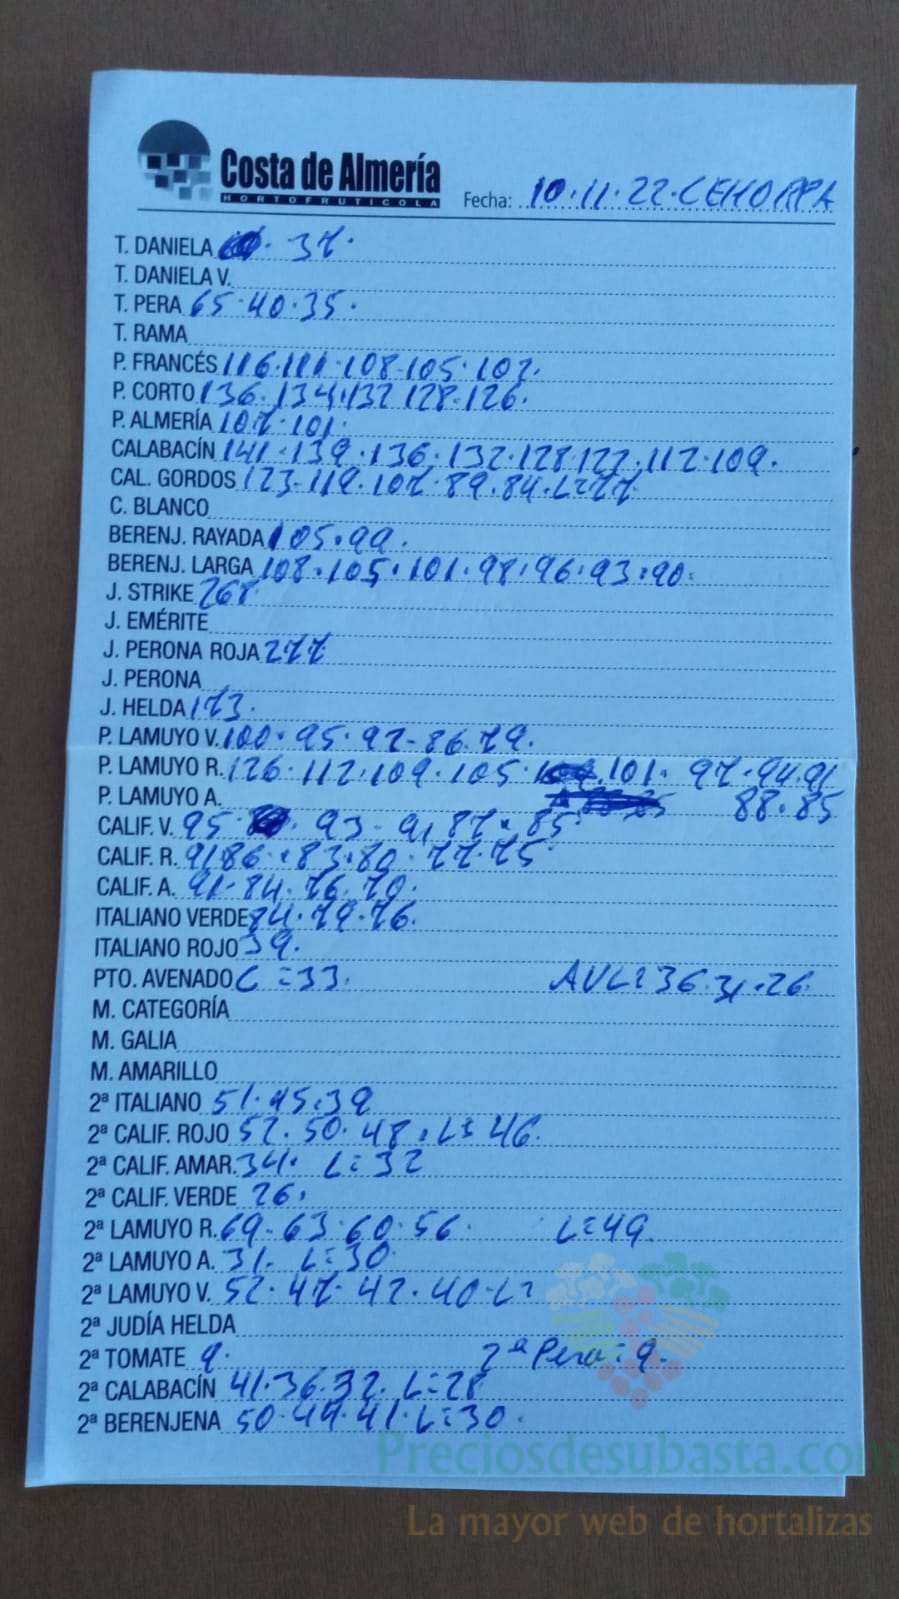 Costa de Almería
HORTOFRUTICOLA
Fecha: 10.11.22.CEHORPA
T. DANIELA 37.
T. DANIELA V.
T. PERA 65.40.35.
T. RAMA
P. FRANCÉS 116.111.108.105.102.
P. CORTO 136.134.132 128.126.
P. ALMERÍA 107.101.
CALABACÍN 141.139.136.132.128.122.112.109.
CAL. GORDOS 123.119.107.89.84.L=77
C. BLANCO
BERENJ. RAYADA 105.99.
BERENJ. LARGA 108.105.101.98.96.93.90.
J. STRIKE 268
J. EMÉRITE
J. PERONA ROJA 277
J. PERONA
J. HELDA 173.
P. LAMUYO V. 100.95.92-86.79.
P. LAMUYO R. 126.112.109.105. 101. 97.94.91
P. LAMUYO A. 88.85
CALIF. V. 95 93-91.87.85
CALIF. R. 91.86.83.80.77.75
CALIF. A. 91.84.76.70.
ITALIANO VERDE 84.79.76.
ITALIANO ROJO 39.
PTO. AVENADO C=33. AVL=36.31.26.
M. CATEGORÍA
M. GALIA
M. AMARILLO
2ª ITALIANO 51.45.39
2ª CALIF. ROJO 52.50.48.L=46.
2ª CALIF. AMAR. 34. L=32
2ª CALIF. VERDE 26.
2ª LAMUYO R. 69-63.60.56. L=49.
2ª LAMUYO A. 31. L=30.
2ª LAMUYO V. 52.47.42.40.L=
2ª JUDÍA HELDA
2ª TOMATE 9. 2ª Pera=9.
2ª CALABACÍN 41.36.32. L=28
2ª BERENJENA 50.44.41.L=30.
Preciosdesubasta.com
La mayor web de hortalizas